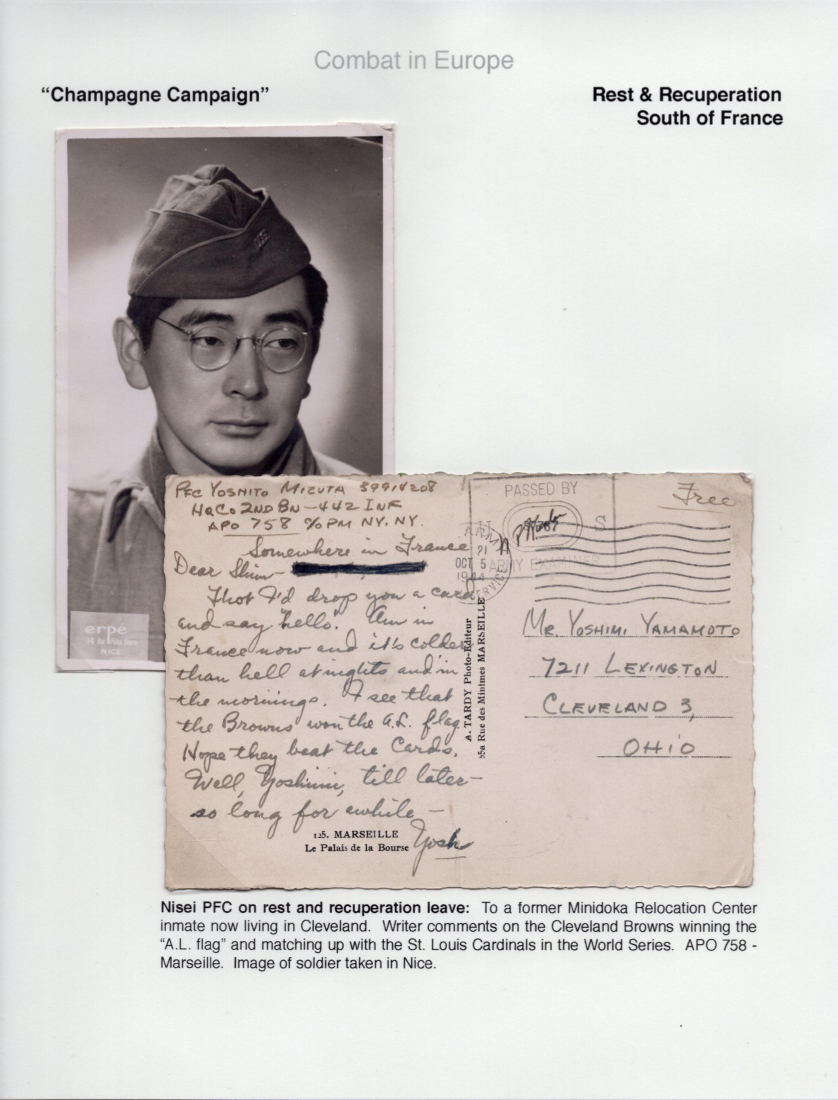 Combat in Europe
“Champagne Campaign”
Rest & Recuperation
South of France
erpé
NICE
Pfc Yoshito Mizuta 39914208
HqCo 2ND BN - 442 INF
APO 758 c/o PM NY. NY.
Somewhere in France
Dear Shim -
Thot I'd drop you a card
and say "hello". Am in
France now and it's colder
than hell at nights and in
the mornings. I see that
the Browns won the A.L. flag.
Hope they beat the Cards.
Well, Yoshimi, till later -
so long for awhile -
Yosh
125. MARSEILLE
Le Palais de la Bourse
A. TARDY Photo-Éditeur
35a Rue des Minimes MARSEILLE
PASSED BY
S
ARMY EXAMINER
OCT 5
1944
Free
Mr. Yoshimi Yamamoto
7211 Lexington
Cleveland 3,
Ohio
Nisei PFC on rest and recuperation leave: To a former Minidoka Relocation Center
inmate now living in Cleveland. Writer comments on the Cleveland Browns winning the
“A.L. flag” and matching up with the St. Louis Cardinals in the World Series. APO 758 -
Marseille. Image of soldier taken in Nice.